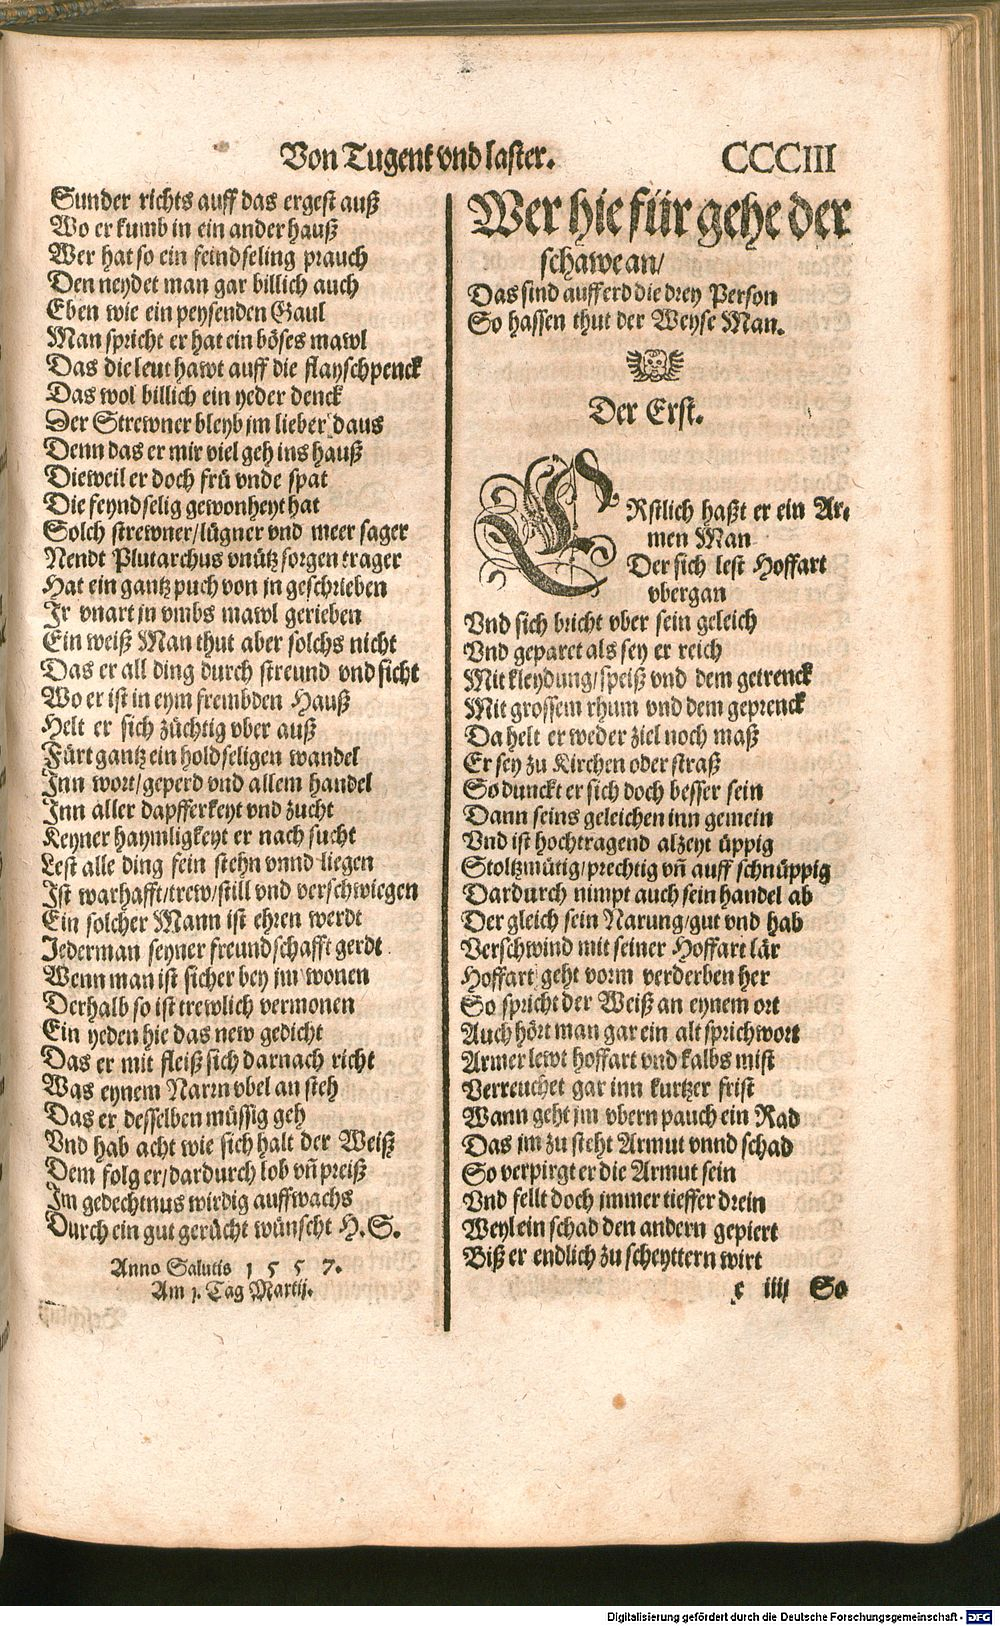 Von Tugent vnd laster. CCCIII
Sunder richts auff das ergest auß
Wo er kumb in ein ander hauß
Wer hat so ein feindseling prauch
Den neydet man gar billich auch
Eben wie ein peysenden Gaul
Man spricht er hat ein böses mawl
Das die leut hawt auff die flayschpenck
Das wol billich ein yeder denck
Der Strewner bleyb im lieber daus
Denn das er mir viel geh ins hauß
Dieweil er doch frü vnde spat
Die feyndselig gewonheyt hat
Solch strewner/lügner vnd meer sager
Nendt Plutarchus vnütz sorgen trager
Hat ein gantz puch von in geschrieben
Ir vnart in vmbs mawl gerieben
Ein weiß Man thut aber solchs nicht
Das er all ding durch streund vnd sicht
Wo er ist in eym frembden Hauß
Helt er sich züchtig vber auß
Fürt gantz ein holdseligen wandel
Inn wort/geperd vnd allem handel
Inn aller dapfferkeyt vnd zucht
Keyner haymligkeyt er nach sucht
Lest alle ding fein stehn vnnd liegen
Ist warhafft/trew/still vnd verschwiegen
Ein solcher Mann ist ehren werdt
Jederman seyner freundschafft gerdt
Wenn man ist sicher bey im wonen
Derhalb so ist trewlich vermonen
Ein yeden hie das new gedicht
Das er mit fleiß sich darnach richt
Was eynem Narrn vbel an steh
Das er desselben müssig geh
Vnd hab acht wie sich halt der Weiß
Dem folg er/dardurch lob vñ preiß
Im gedechtnus wirdig auffwachs
Durch ein gut gerücht wünscht H.S.
Anno Salutis 1 5 5 7.
Am 1. Tag Martij.
Wer hie für gehe der
schawe an/
Das sind auff erd die drey Person
So hassen thut der Weyse Man.
Der Erst.
ERstlich haßt er ein Ar-
men Man
Der sich lest Hoffart
vbergan
Vnd sich bricht vber sein geleich
Vnd geparet als sey er reich
Mit kleydung/speiß vnd dem getrenck
Mit grossem rhum vnd dem geprenck
Da helt er weder ziel noch maß
Er sey zu Kirchen oder straß
So dunckt er sich doch besser sein
Dann seins geleichen inn gemein
Vnd ist hochtragend alzeyt üppig
Stoltzmütig/prechtig vñ auff schnüppig
Dardurch nimpt auch sein handel ab
Der gleich sein Narung/gut vnd hab
Verschwind mit seiner Hoffart lär
Hoffart geht vorm verderben her
So spricht der Weiß an eynem ort
Auch hört man gar ein alt sprichwort
Armer lewt hoffart vnd kalbs mist
Verreuchet gar inn kurtzer frist
Wann geht im vbern pauch ein Rad
Das im zu steht Armut vnnd schad
So verpirgt er die Armut sein
Vnd fellt doch immer tieffer drein
Weyl ein schad den andern gepiert
Biß er endlich zu scheyttern wirt
c iiij So
Digitalisierung gefördert durch die Deutsche Forschungsgemeinschaft - DFG